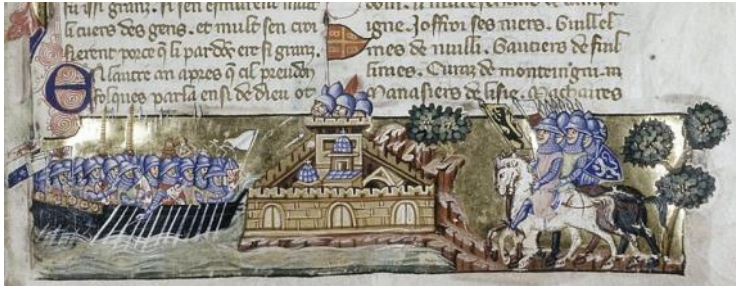 fu issi granz. si sen esmurent mult
li cuers des gens. et mult sen croi
sierent porce q̃ li pardõs ere si granz.
lautre an apres q̃ cil preudon
folques parla ensi de dieu ot
igne. Joffroi ses niers. Guillel
mes de nuilli. Gautiers de fuil
limes. Euraz de monteingni.
Manasiers de lisle. Machaires